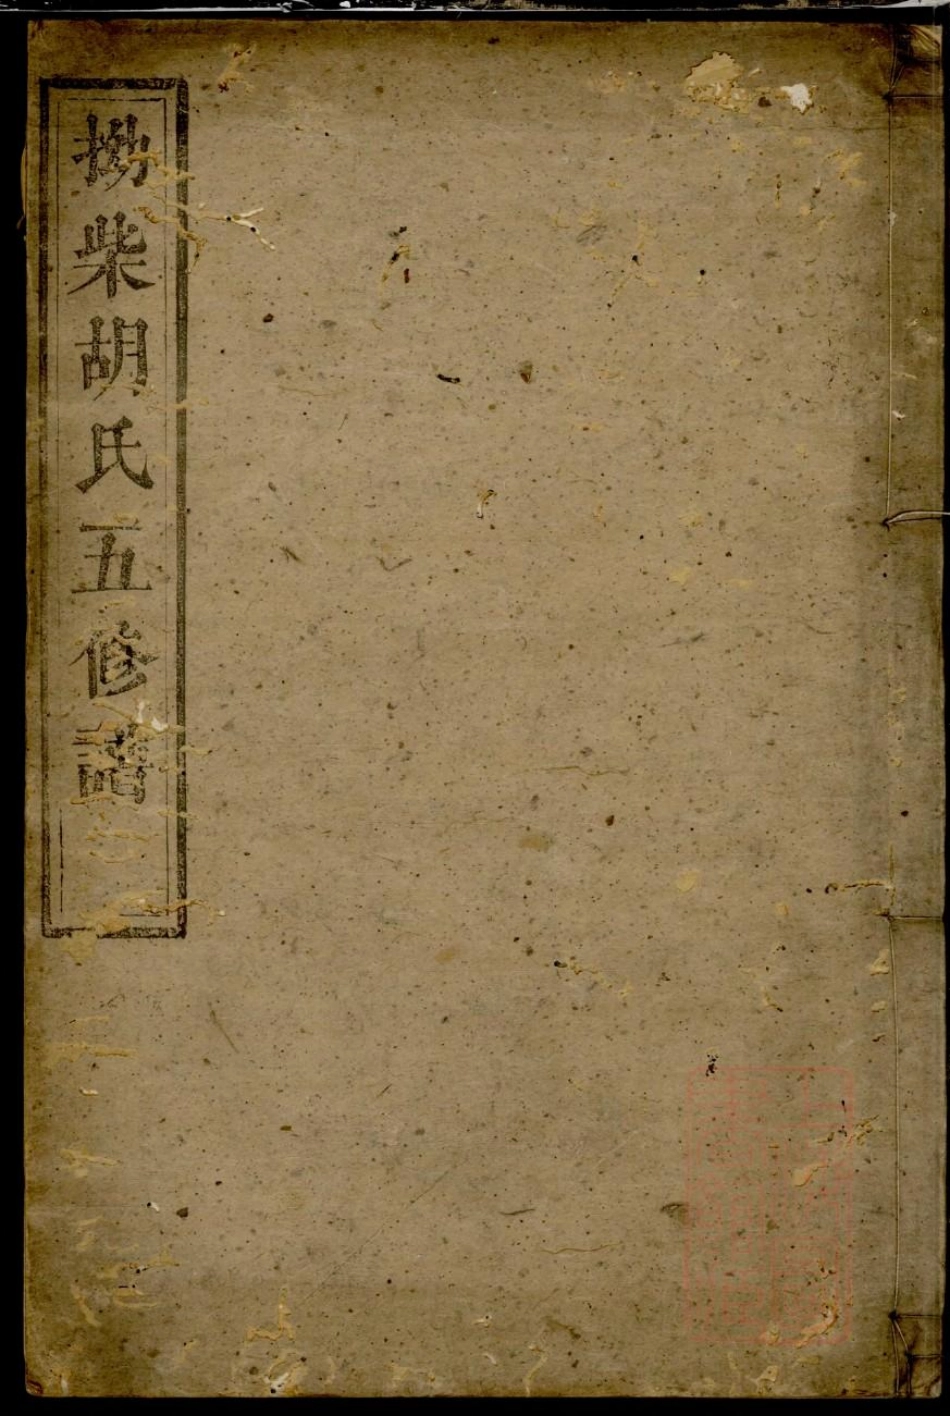 拗柴胡氏五修譜